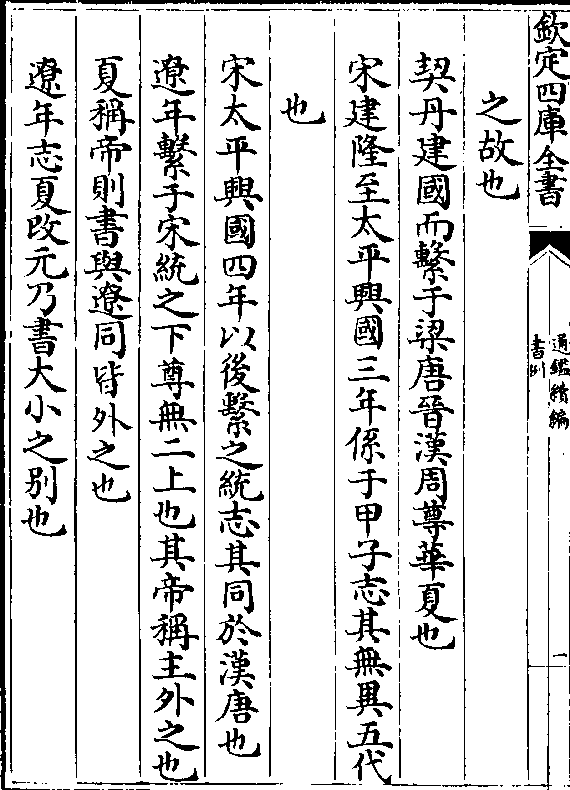 欽定四庫全書
通鑑續編
書例
一
之故也
契丹建國而繫于梁唐晉漢周尊華夏也
宋建隆至太平興國三年係于甲子志其無異五代
也
宋太平興國四年以後繫之統志其同於漢唐也
遼年繫于宋統之下尊無二上也其帝稱主外之也
夏稱帝則書與遼同皆外之也
遼年志夏改元乃書大小之别也